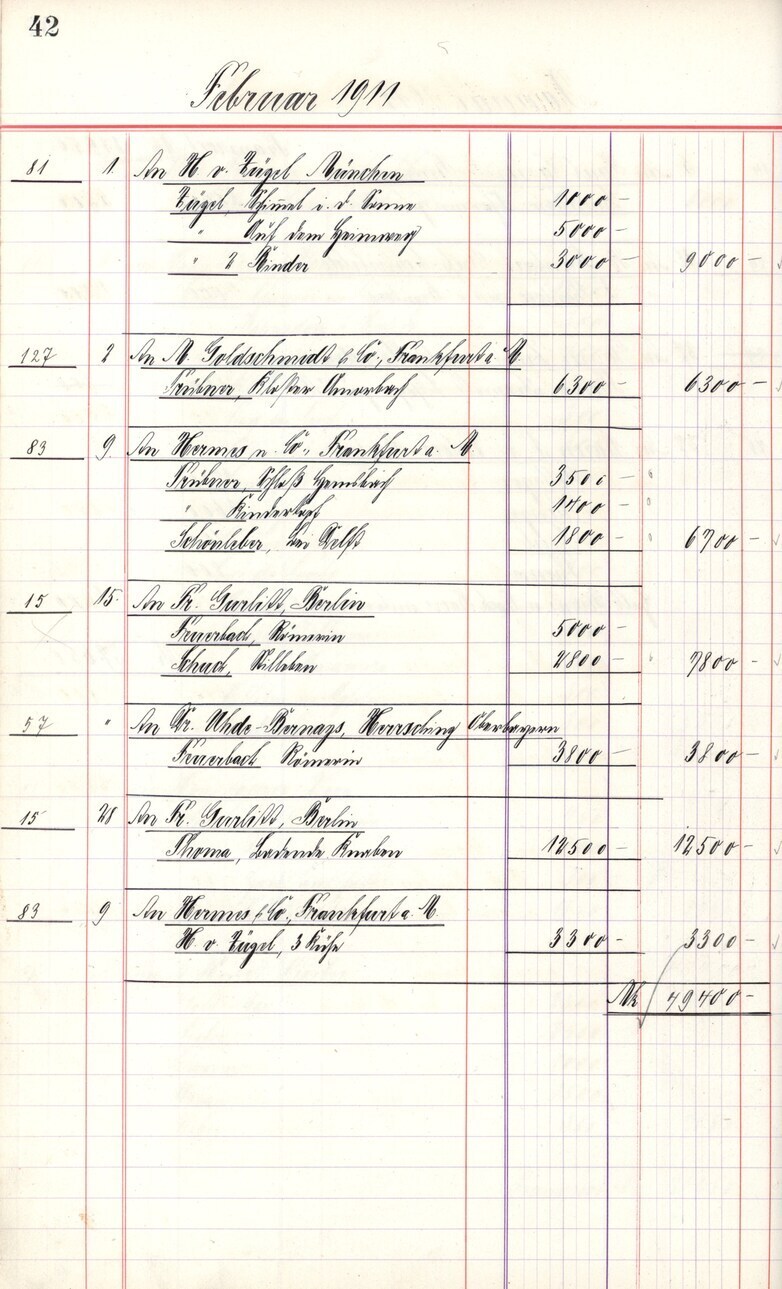 42
Februar 1911
81 1. An H. v. Zügel, München
Zügel, Schimmel i. d. Sonne 1000 –
" Auf dem Heimweg 5000 –
" 2 Rinder 3000 – 9000 –
127 2 An M. Goldschmidt & Co., Frankfurt a. M.
Trübner, Kloster Amorbach 6300 – 6300 –
83 9. An Hermes u. Co., Frankfurt a. M.
Trübner, Schloß Hemsbach 3500 –
" Kinderkopf 1400 –
Schönleber, bei Delft 1800 – 6700 –
15 15. An Fr. Gurlitt, Berlin
Feuerbach, Römerin 5000 –
Schuch, Stilleben 2800 – 7800 –
57 " An Dr. Uhde-Bernays, Herrsching Oberbayern
Feuerbach Römerin 3800 – 3800 –
15 28 An Fr. Gurlitt, Berlin
Thoma, Badende Knaben 12500 – 12500 –
83 9 An Hermes & Co., Frankfurt a. M.
H. v. Zügel, 3 Kühe 3300 – 3300 –
Mk 49400 –